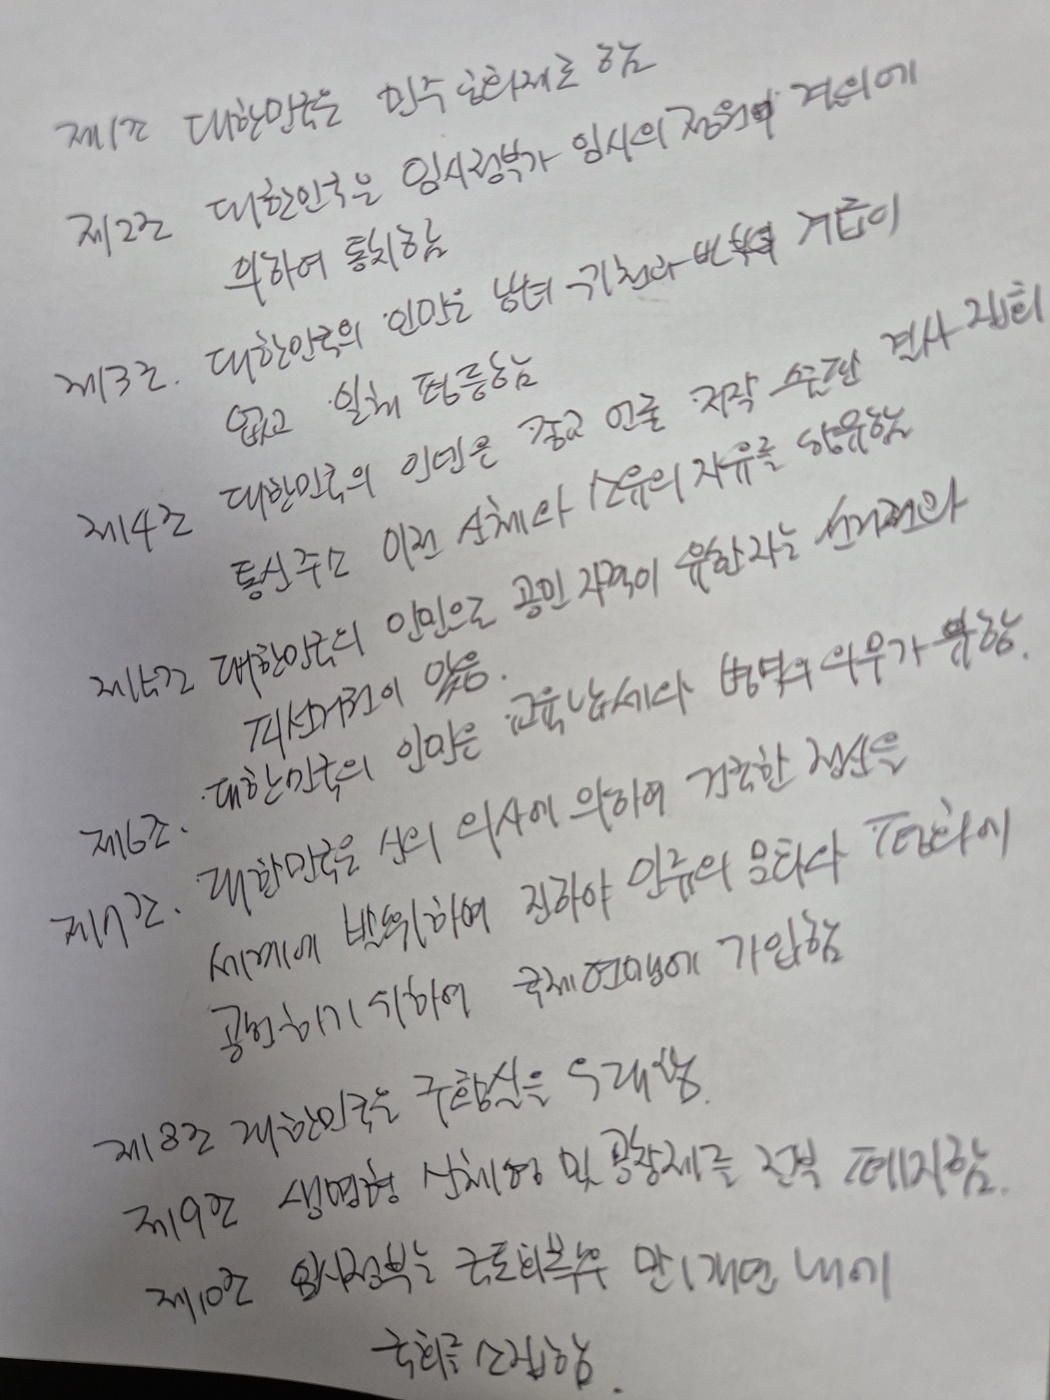 제1조 대한민국은 민주공화제로 함
제2조 대한민국은 임시정부가 임시의정원의 결의에
의하여 통치함
제3조. 대한민국의 인민은 남녀 귀천과 빈부의 계급이
없고 일체 평등함
제4조 대한민국의 인민은 종교 언론 저작 출판 결사 집회
통신 주소 이전 신체와 소유의 자유를 향유함
제5조 대한민국의 인민으로 공민 자격이 유한 자는 선거권과
피선거권이 있음.
제6조. 대한민국의 인민은 교육 납세와 병역의 의무가 유함.
제7조. 대한민국은 신의 의사에 의하여 건국한 정신을
세계에 발휘하며 진하야 인류의 문화와 평화에
공헌하기 위하여 국제연맹에 가입함
제8조 대한민국은 구황실을 우대함.
제9조 생명형 신체형 및 공창제를 전부 폐지함.
제10조 임시정부는 국토회복후 만1개년 내에
국회를 소집함.